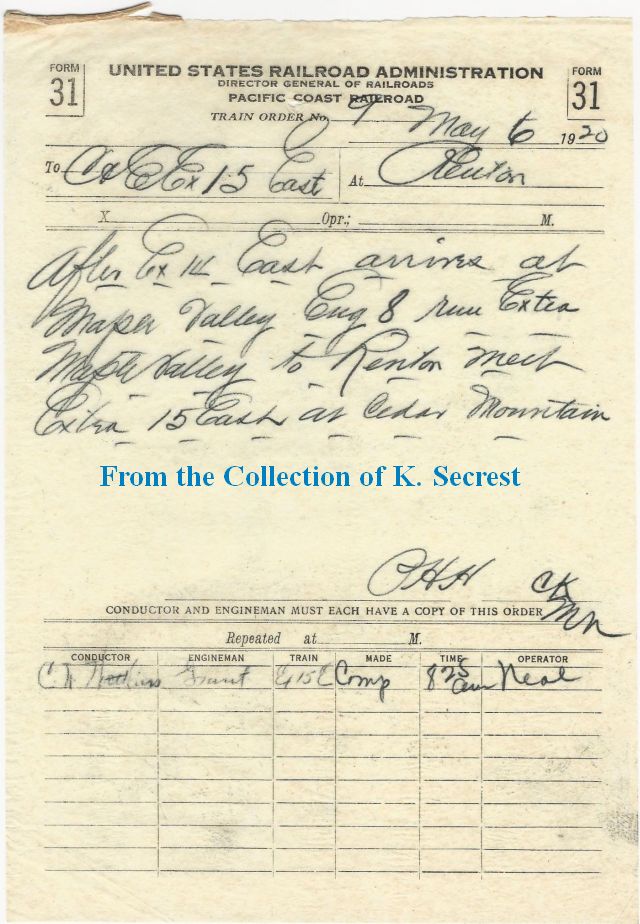 FORM 31
UNITED STATES RAILROAD ADMINISTRATION
DIRECTOR GENERAL OF RAILROADS
PACIFIC COAST RAILROAD
FORM 31
TRAIN ORDER No. 9 May 6 1920
To C&E Ex 15 East At Renton
X Opr.; M.
After Ex 14 East arrives at
Maple Valley Eng 8 run Extra
Maple Valley to Renton meet
Extra 15 East at Cedar Mountain
From the Collection of K. Secrest
CONDUCTOR AND ENGINEMAN MUST EACH HAVE A COPY OF THIS ORDER
Repeated at M.
CONDUCTOR ENGINEMAN TRAIN MADE TIME OPERATOR
Grant Comp 825 am Neal